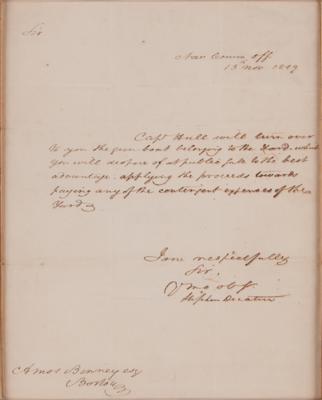 Sir
Nav Comrs off
13th Nov 1819
Capt Hull will turn over
to you the gun boat belonging to the Yard. which
you will dispose of at public sale to the best
advantage. applying the proceeds towards
paying any of the contingent expenses of the
Yard
I am respectfully
Sir,
Yr mo ob S.
Stephen Decatur
Amos Binney esq
Boston